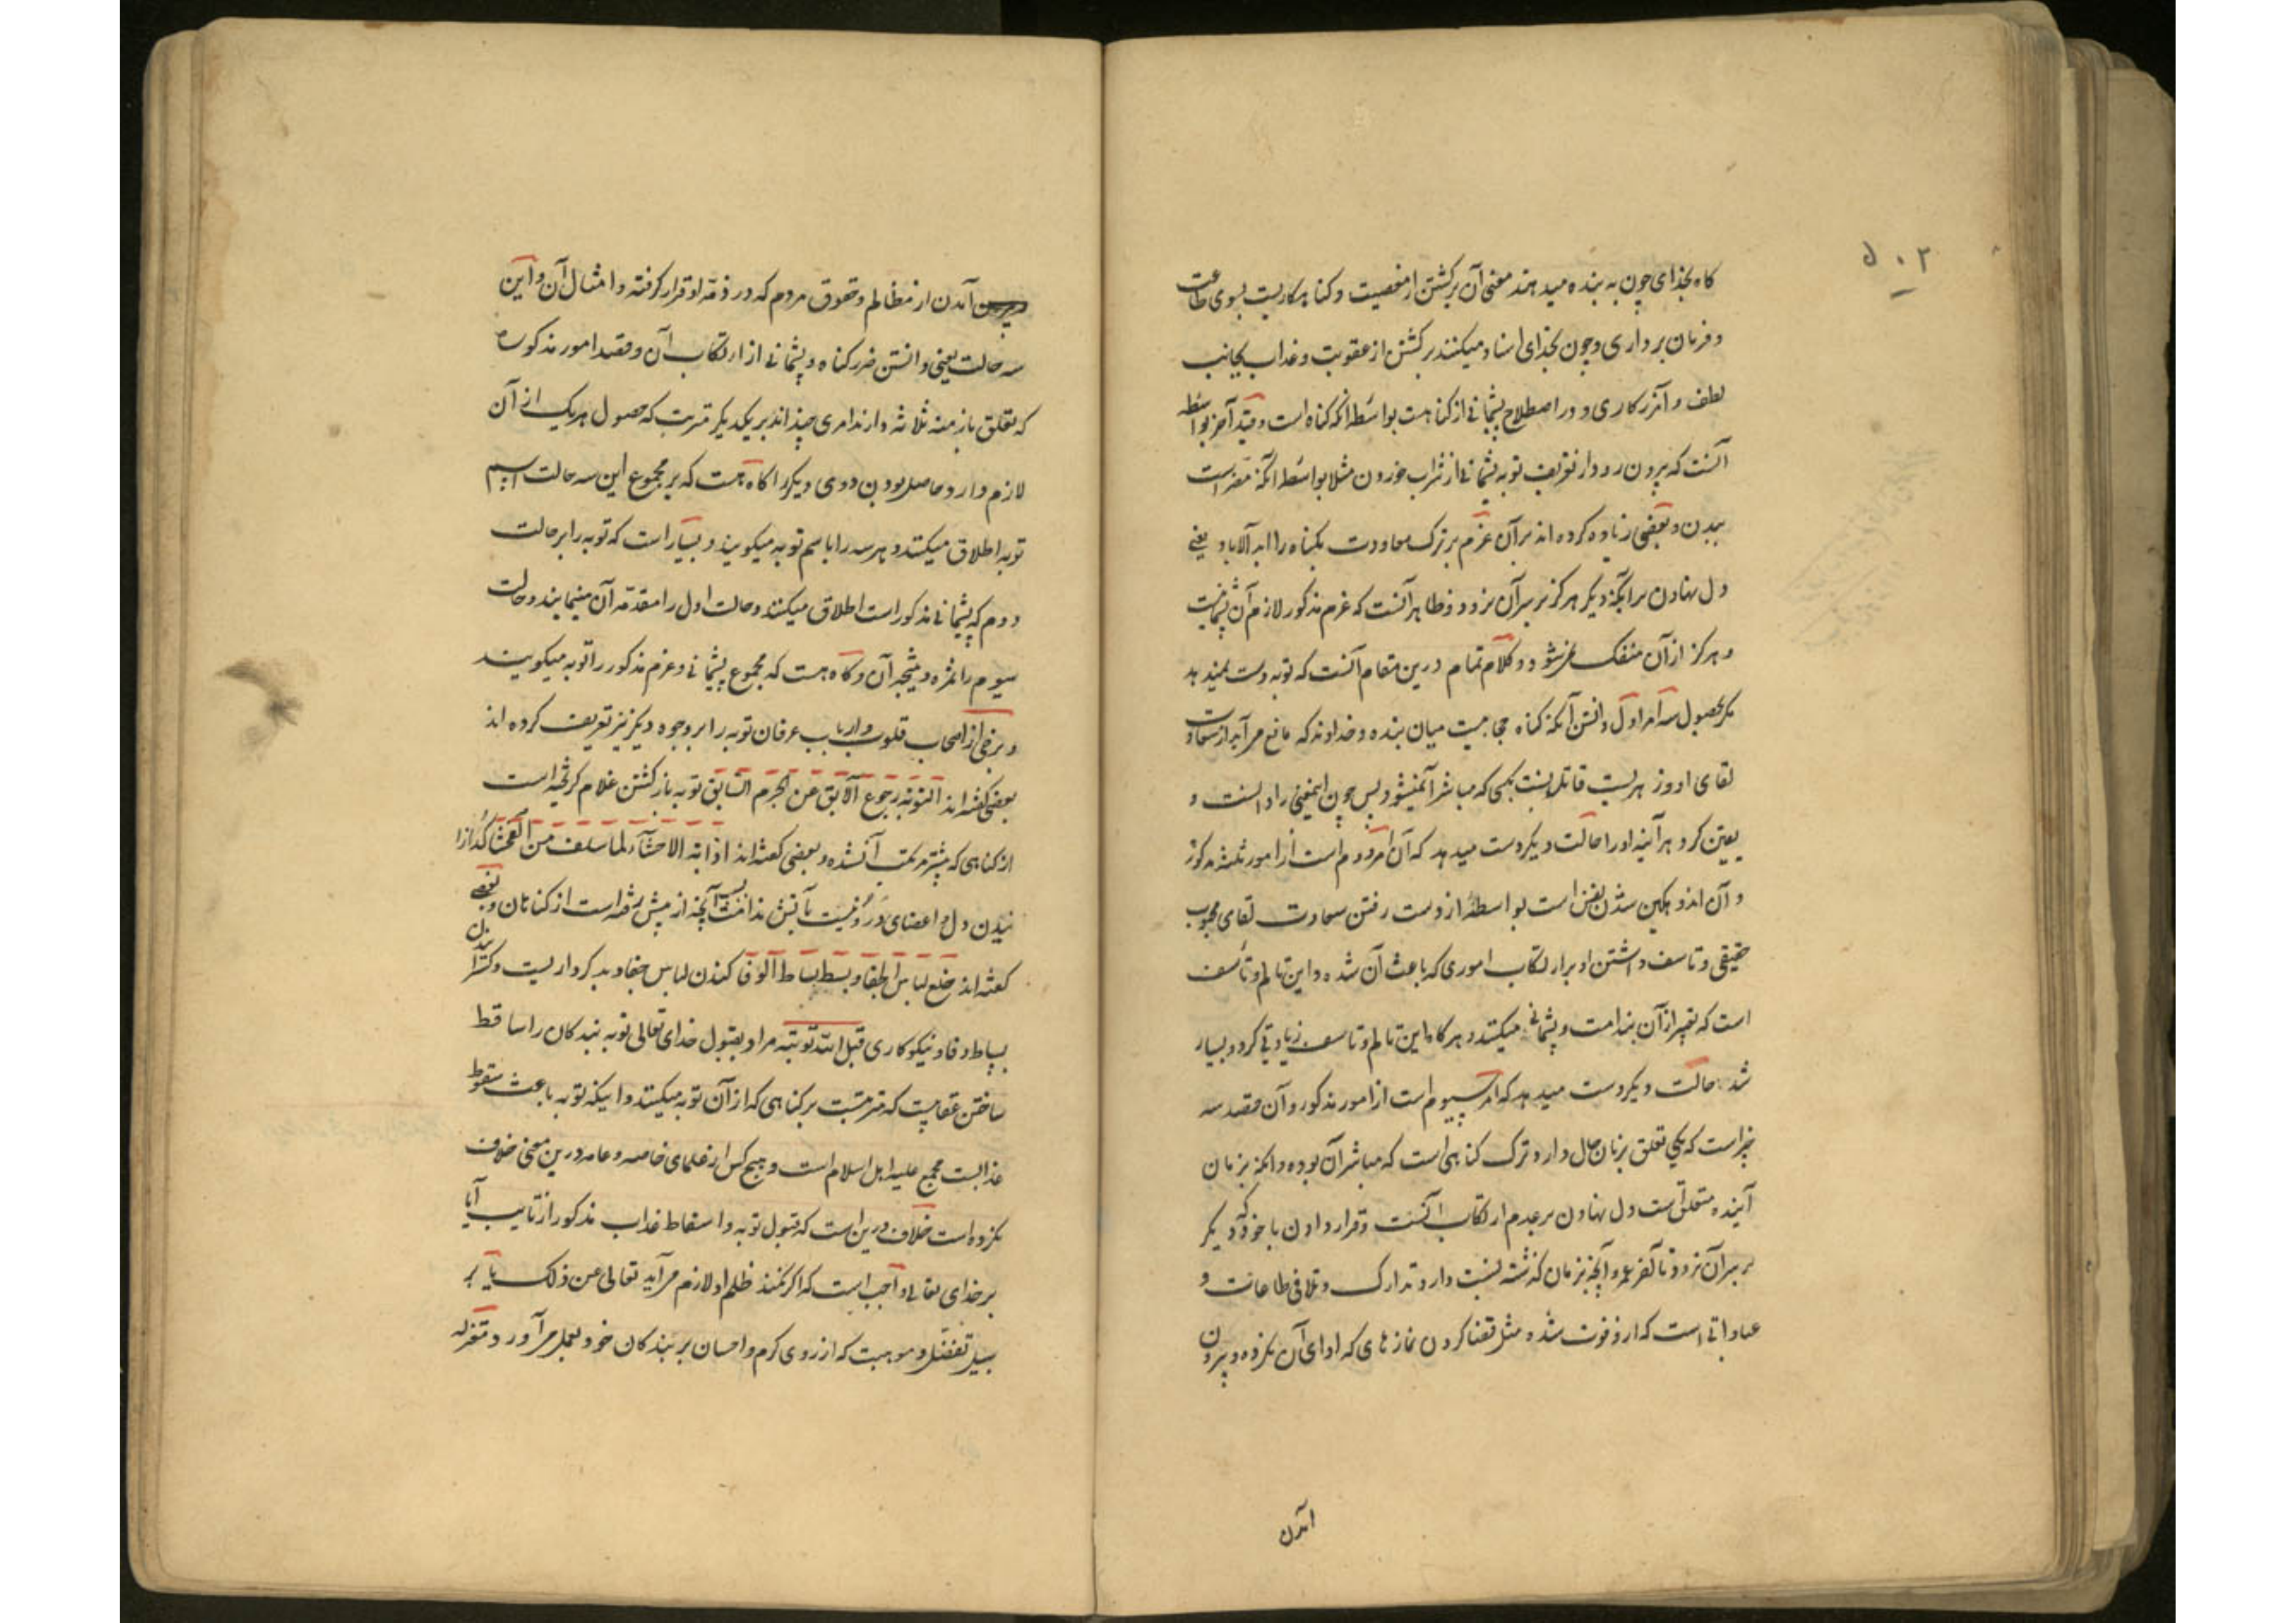 ۵۰۳
گاه بخدای چون به بنده میدهند معنی آن برگشتن از معصیت و کناهکاریست بسوی طاعت
و فرمان برداری و چون بخدای اسناد میکنند برگشتن از عقوبت و عذاب بجانب
لطف و آمرزکاری و در اصطلاح پشیمانی از کناهست بواسطه آنکه کناه است و قید آخر بواسطه
آنست که بیرون رود از تعریف توبه پشیمانی از شراب خوردن مثلا بواسطه آنکه مضر است
ببدن و بعضی زیاده کرده اند بر آن عزم بر ترک معاودت بکناه را ابد الاباد یعنی
دل نهادن بر آنکه دیگر هرگز بر سر آن نرود و ظاهر آنست که عزم مذکور لازم آن پشیمانیست
و هرگز از آن منفک نمیشود و کلام تمام درین مقام آنست که توبه دست نمیدهد
مگر بحصول سه امر اول دانستن آنکه کناه حجابیست میان بنده و خداوند که مانع می آید از سعادت
لقای او و زهریست قاتل نسبت بکسی که مباشر آن میشود پس چون اینمعنی را دانست و
یقین کرد هر آینه او را حالت دیگر دست میدهد که آن امر دوم است از امور ثلثه مذکوره
و آن اندوهگین شدن نفس است بواسطه از دست رفتن سعادت لقای محبوب
حقیقی و تاسف داشتن او بر ارتکاب اموری که باعث آن شده و این تالم و تاسف
است که تعبیر از آن بندامت و پشیمانی میکنند و هرگاه این تالم و تاسف زیادتی کرد و بسیار
شد حالت دیگر دست میدهد که امر سیوم است از امور مذکور و آن قصد سه
چیز است که یکی تعلق بزمان حال دارد ترک کناهی است که مباشر آن بوده و آنکه بزمان
آینده متعلق است دل نهادن بر عدم ارتکاب آنست و قرار دادن با خود که دیگر
بر سر آن نرود تا آخر عمر و آنچه بزمان گذشته نسبت دارد تدارک و تلافی طاعات و
عباداتی است که از او فوت شده مثل قضا کردن نمازهای که ادای آن نکرده و بیرون
آمدن
آمدن از مظالم و حقوق مردم که در ذمه او قرار گرفته و امثال آن و این
سه حالت یعنی دانستن ضرر کناه و پشیمانی از ارتکاب آن و قصد امور مذکوره
که تعلق بازمنه ثلاثه دارند امری چند اند بر یکدیگر مترتب که حصول هر یک از آن
لازم دارد حاصل بودن دوی دیگر را گاه هست که بر مجموع این سه حالت اسم
توبه اطلاق میکنند و هر سه را باسم توبه میگویند و بسیار است که توبه را بر حالت
دوم که پشیمانی مذکور است اطلاق میکنند و حالت اول را مقدمه آن مینمایند و حالت
سیوم را ثمره و نتیجه آن و گاه هست که مجموع پشیمانی و عزم مذکور را توبه میگویند
و برخی از اصحاب قلوب و ارباب عرفان توبه را بر وجوه دیگر نیز تعریف کرده اند
بعضی گفته اند التوبة رجوع الآبق عن الجرم السابق توبه بازگشتن غلام گریخته است
از کناهی که پیشتر مرتکب آن شده و بعضی گفته اند اذابة الاحشاء لما سلف من الفحشاء گدازا
نیدن دل و اعضای درونیست بآتش ندامت بسبب آنچه از پیش رفته است از کناهان و بعضی
گفته اند خلع لباس الجفا و بسط بساط الوفا کندن لباس جفا و بدکرداریست و گسترانیدن
بساط وفا و نیکوکاری قبل الله توبته مراد بقبول خدای تعالی توبه بندگان را ساقط
ساختن عقابیست که مترتبست بر کناهی که از آن توبه میکنند و اینکه توبه باعث سقوط
عذابست مجمع علیه اهل اسلام است و هیچ کس از علمای خاصه و عامه درین معنی خلاف
نکرده است خلاف درین است که قبول توبه و اسقاط عذاب مذکور از تایب آیا
بر خدای تعالی واجب است که اگر نکند ظلم او لازم می آید تعالی عن ذلک یا بر
سبیل تفضل و موهبت که از روی کرم و احسان بر بندگان خود بعمل می آورد و معتزله